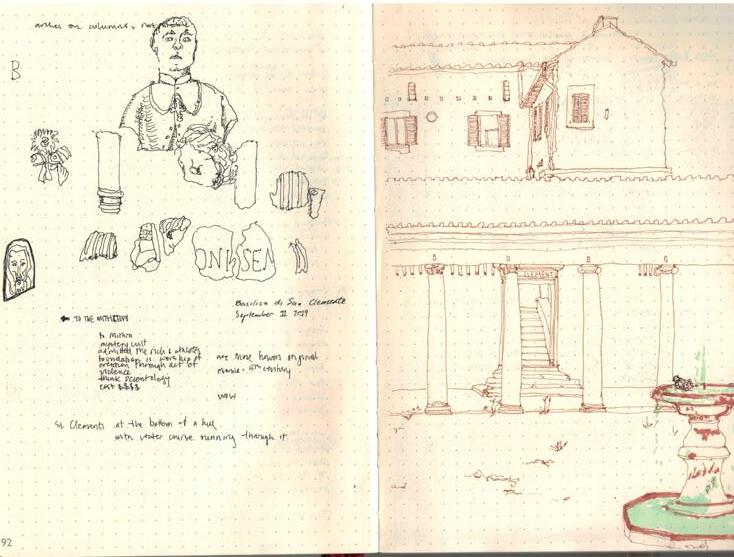 arches on columns, not
B
ONI SEN
Basilica di San Clemente
September 11 2019
← TO THE MITHREUM
to mithra
mystery cult
admitted the rich &
foundation is worship of
creation through act of
violence
think scientology
cost $$$$
are most havens original
mosaic · 15th century
WOW
St Clementi at the bottom of a hill
with water course running through it
92
CLEMENT